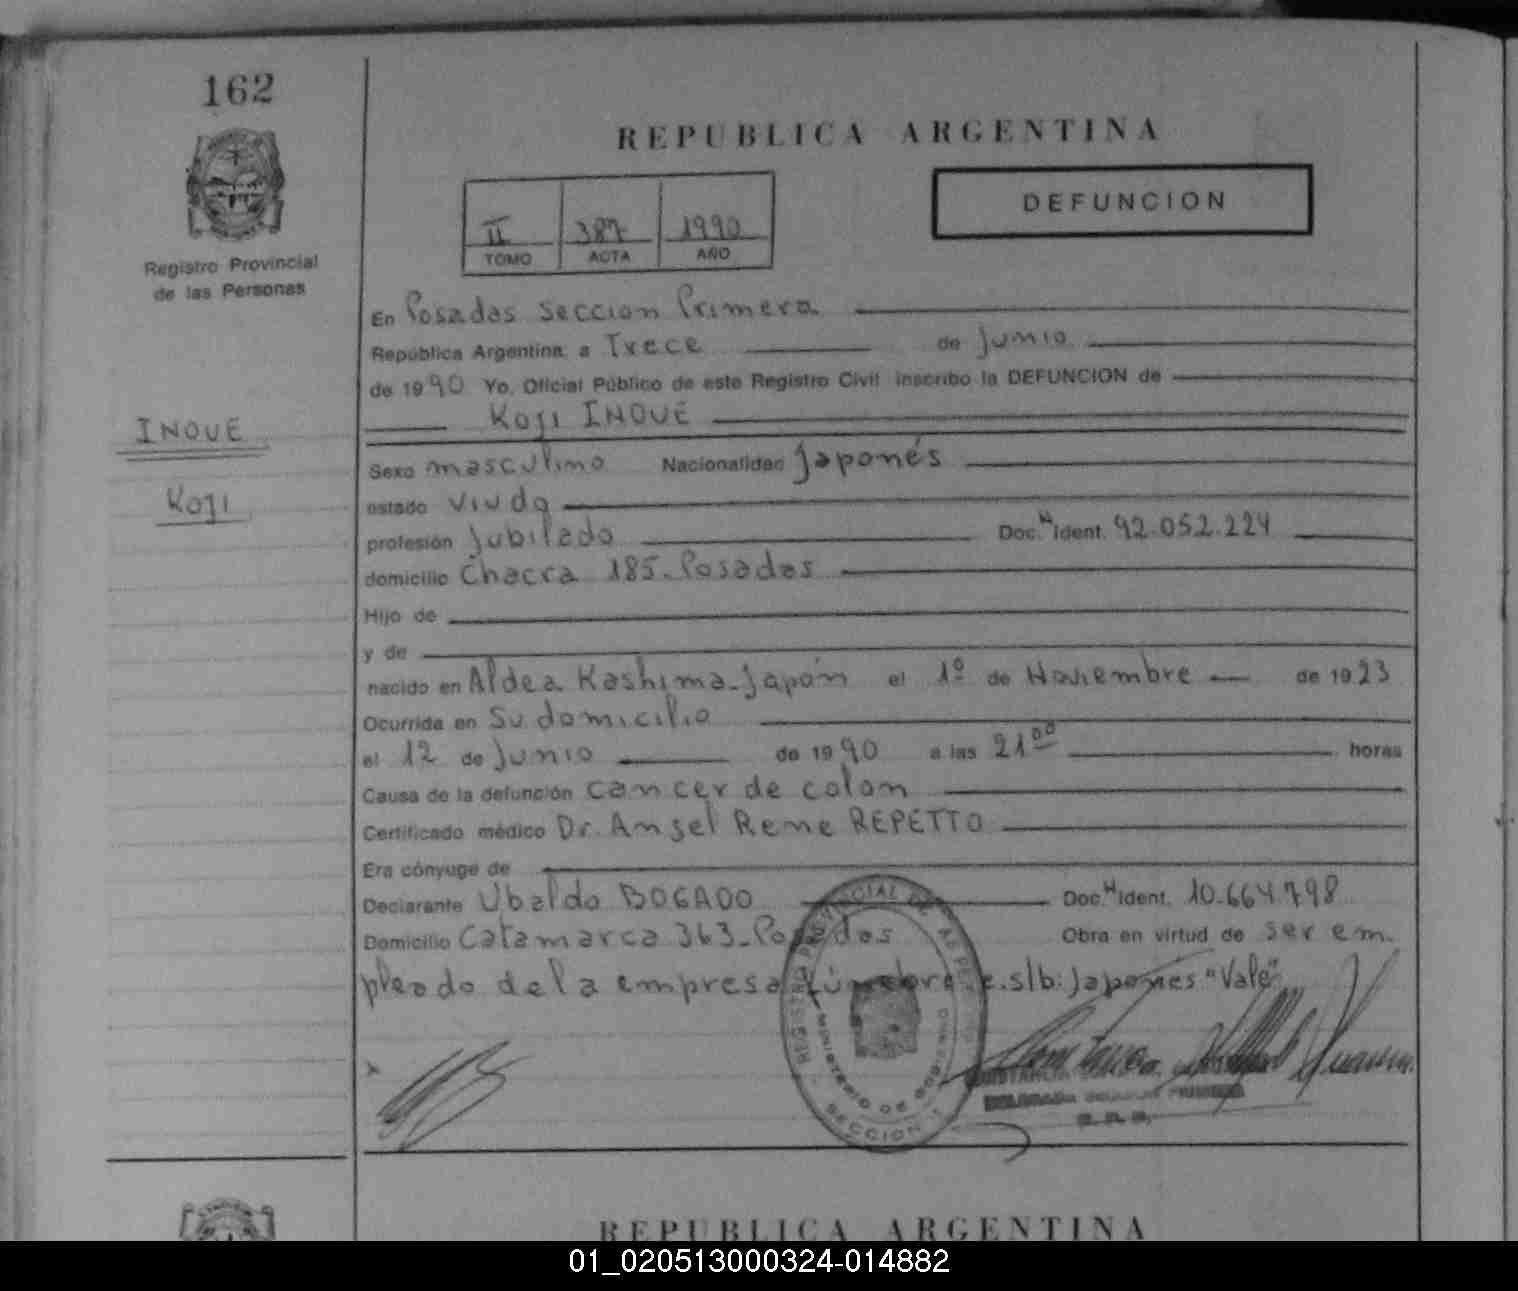 162
REPUBLICA ARGENTINA
DEFUNCION
II 387 1990
TOMO ACTA AÑO
Registro Provincial
de las Personas
En Posadas Seccion Primera
República Argentina a Trece de Junio
de 1990 Yo, Oficial Público de este Registro Civil inscribo la DEFUNCION de
Koji INOUE
INOUE
KOJI
Sexo masculino Nacionalidad Japonés
estado viudo
profesión Jubilado Doc. N Ident. 92.052.224
domicilio Chacra 185. Posadas
Hijo de
y de
nacido en Aldea Kashima-Japón el 1º de Noviembre de 1923
Ocurrida en Su domicilio
el 12 de Junio de 1990 a las 21 00 horas
Causa de la defunción cancer de colon
Certificado médico Dr. Angel Rene REPETTO
Era cónyuge de
Declarante Ubaldo BOGADO Doc. N Ident. 10.664.798
Domicilio Catamarca 363-Posadas Obra en virtud de ser em-
pleado de la empresa fúnebre. e.s/b: Japones "Vale"
REGISTRO PROVINCIAL DE LAS PERSONAS
MINISTERIO DE GOBIERNO
SECCION 1
REPUBLICA ARGENTINA
01_020513000324-014882